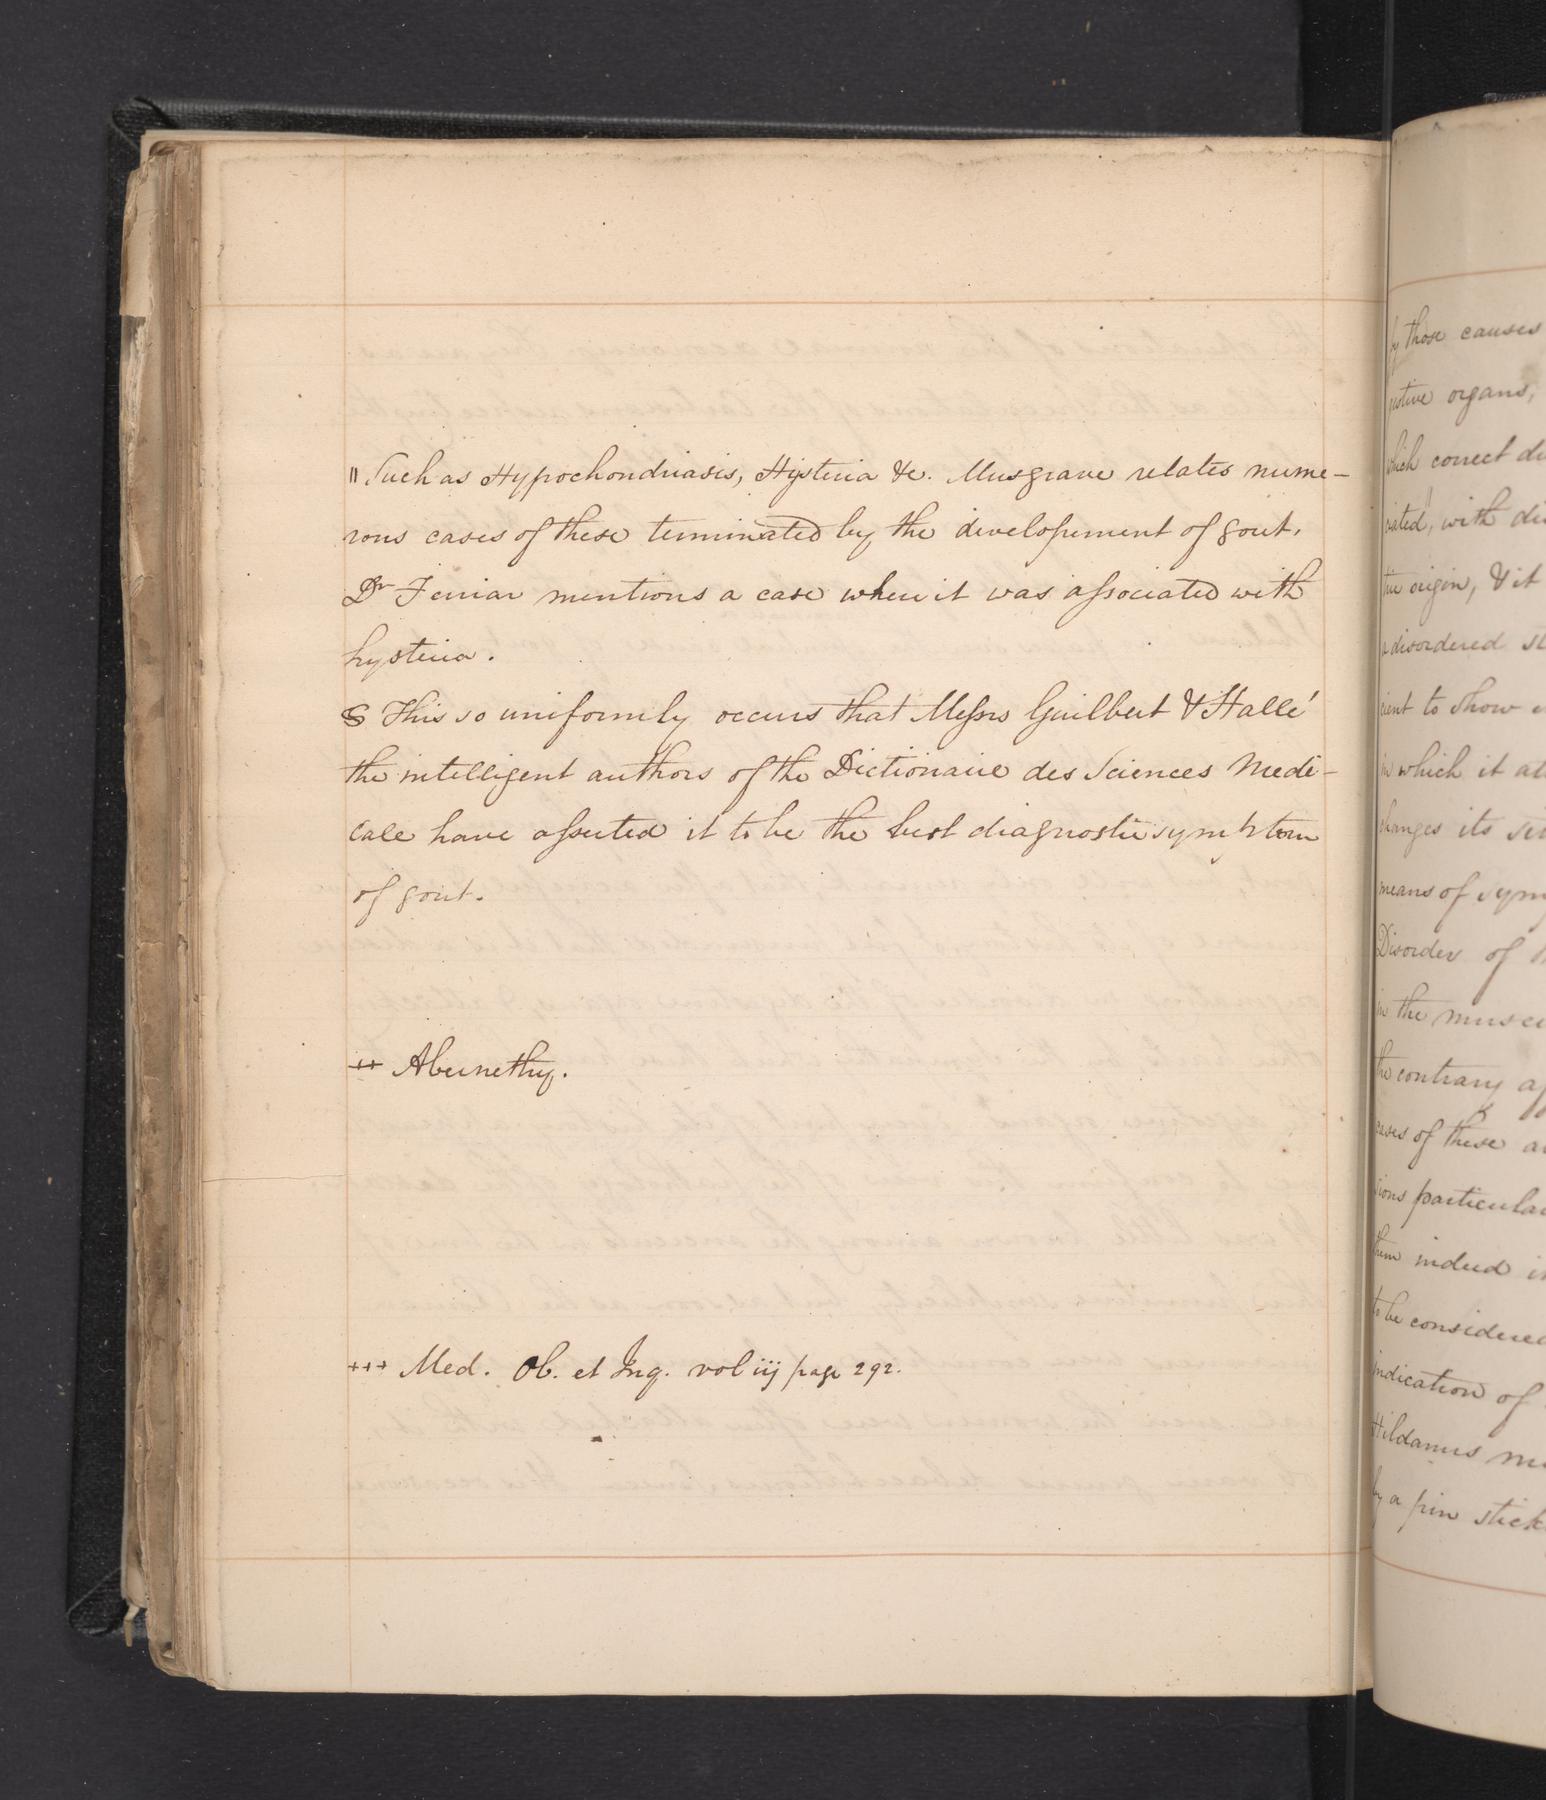 " Such as Hypochondriasis, Hysteria &c. Musgrave relates nume-
rous cases of these terminated by the developement of gout.
Dr Ferriar mentions a case where it was associated with
hysteria.
§ This so uniformly occurs that Messrs Guilbert & Hallé
the intelligent authors of the Dictionaire des Sciences Medi-
cale have asserted it to be the best diagnostic symptom
of gout.
++ Abernethy.
+++ Med. Ob. et Inq. vol iij page 292.
by those causes
gestive organs,
which correct
ciated", with
the origin, & it
a disordered
cient to show
in which it
changes its
means of
Disorder of
in the
the contrary
cases of these
sions
them indeed
to be considered
indication of
Hildanus
by a pin